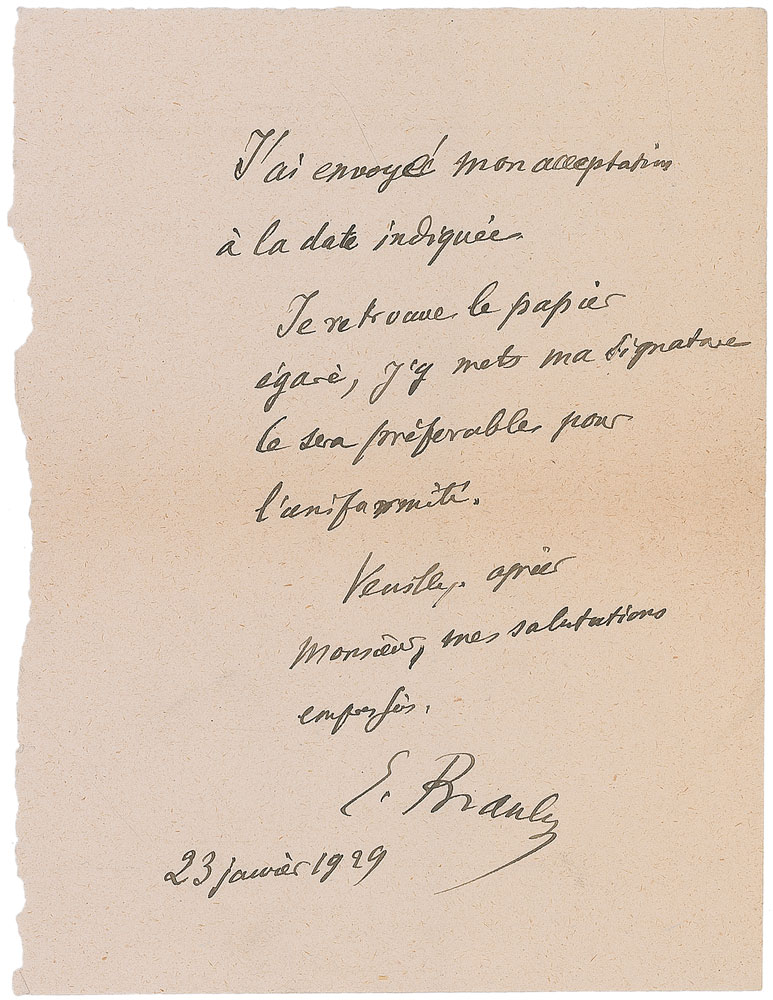 J'ai envoyé mon acceptation
à la date indiquée.
Je retrouve le papier
égaré, j'y mets ma signature
Ce sera préférable, pour
l'uniformité.
Veuillez agréer
Monsieur, mes salutations
empressées.
E. Branly
23 janvier 1929